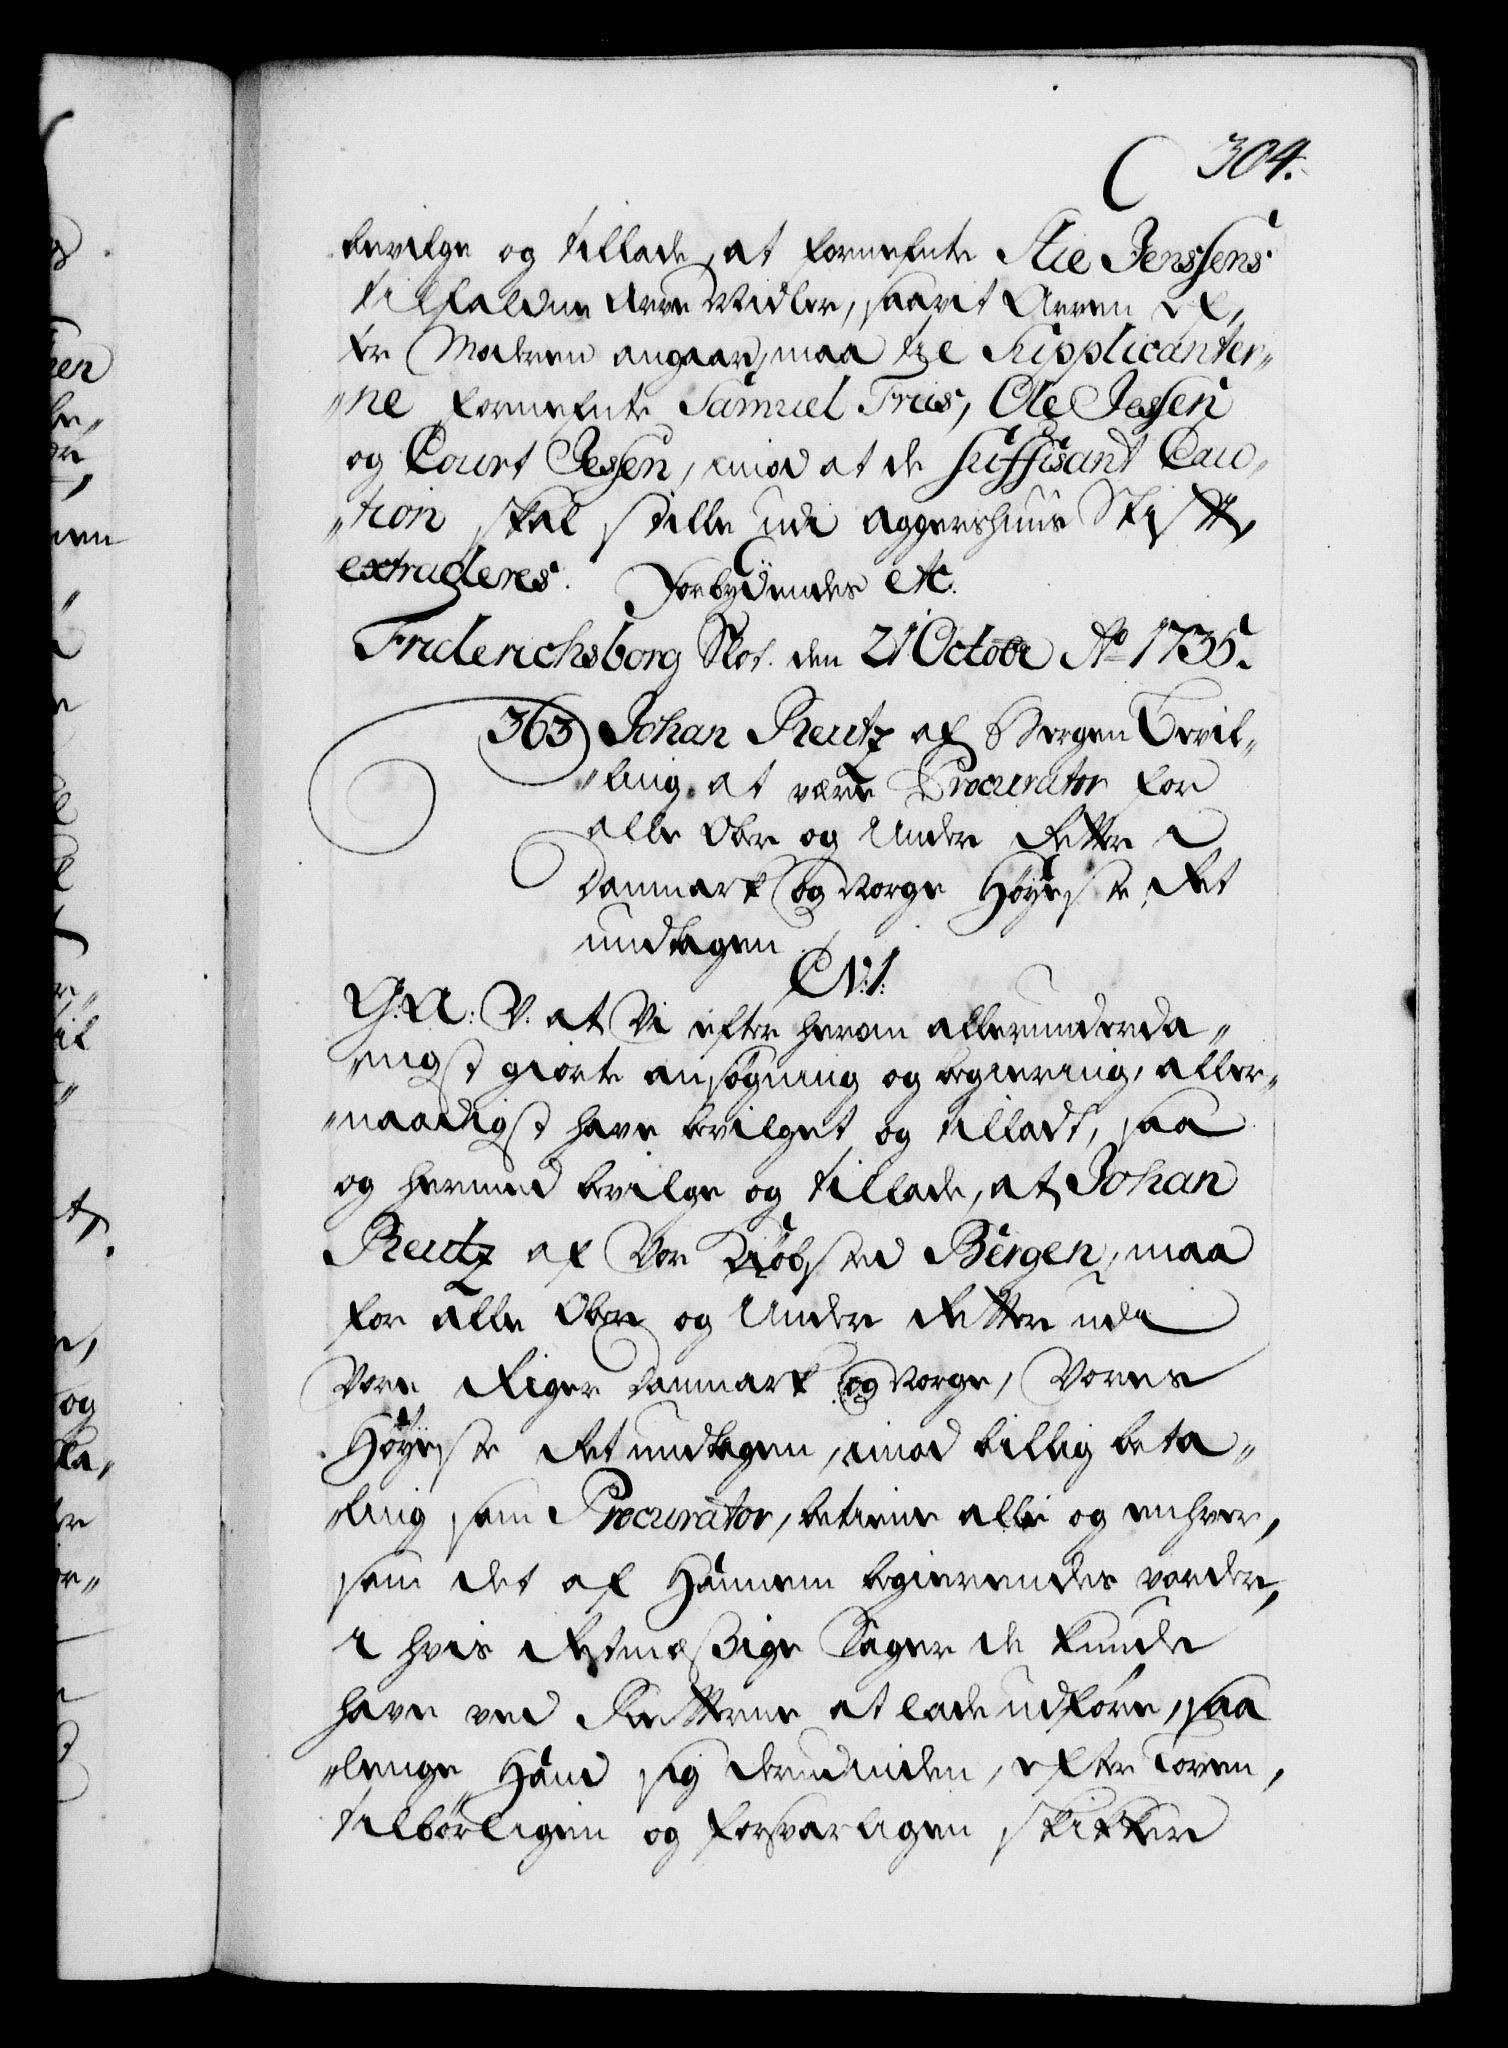 304.
bevilge og tillade, at fornefnte Stie Jenssens
tilfaldne Arve Midler, saavit Arven ef,,
ter Moderen angaar, maa til Supplicanter,,
,,ne fornefnte Samuel Friis, Ole Jessen
og Court Jessen, imod at de suffisant Cau,,
,,tion skal stille udi Aggershuus Stift,
extraderes. Forbydendes etc.
Friderichsborg Slot. den 21 Octobr Ao 1735.
363 Johan Reutz af Bergen Bevil,,
,,ling at være Procurator for
alle Ober og Under Retter i
Danmark og Norge Høyeste Ret
undtagen
C N: 1:
G. A: V. at Vi efter herom allerunderda,,
,,nigst giorte ansøgning og begiering, aller,,
,,naadigst have bevilget og tilladt, saa
og hermed bevilge og tillade, at Johan
Reutz af Vor Kiøbsted Bergen, maa
for alle Ober og Under Retter udi
Vore Riger Danmark og Norge, Vores
Høyeste Ret undtagen, imod billig beta,,
,,ling som Procurator, betiene alle og enhver,
som det af Hannem begierendes vorder,
i hvis Retmæssige Sager de kunde
have ved Retterne at lade udføre, saa
,,lenge Hand sig derudinden, efter Loven,
tilbørligen og forsvarligen skikker